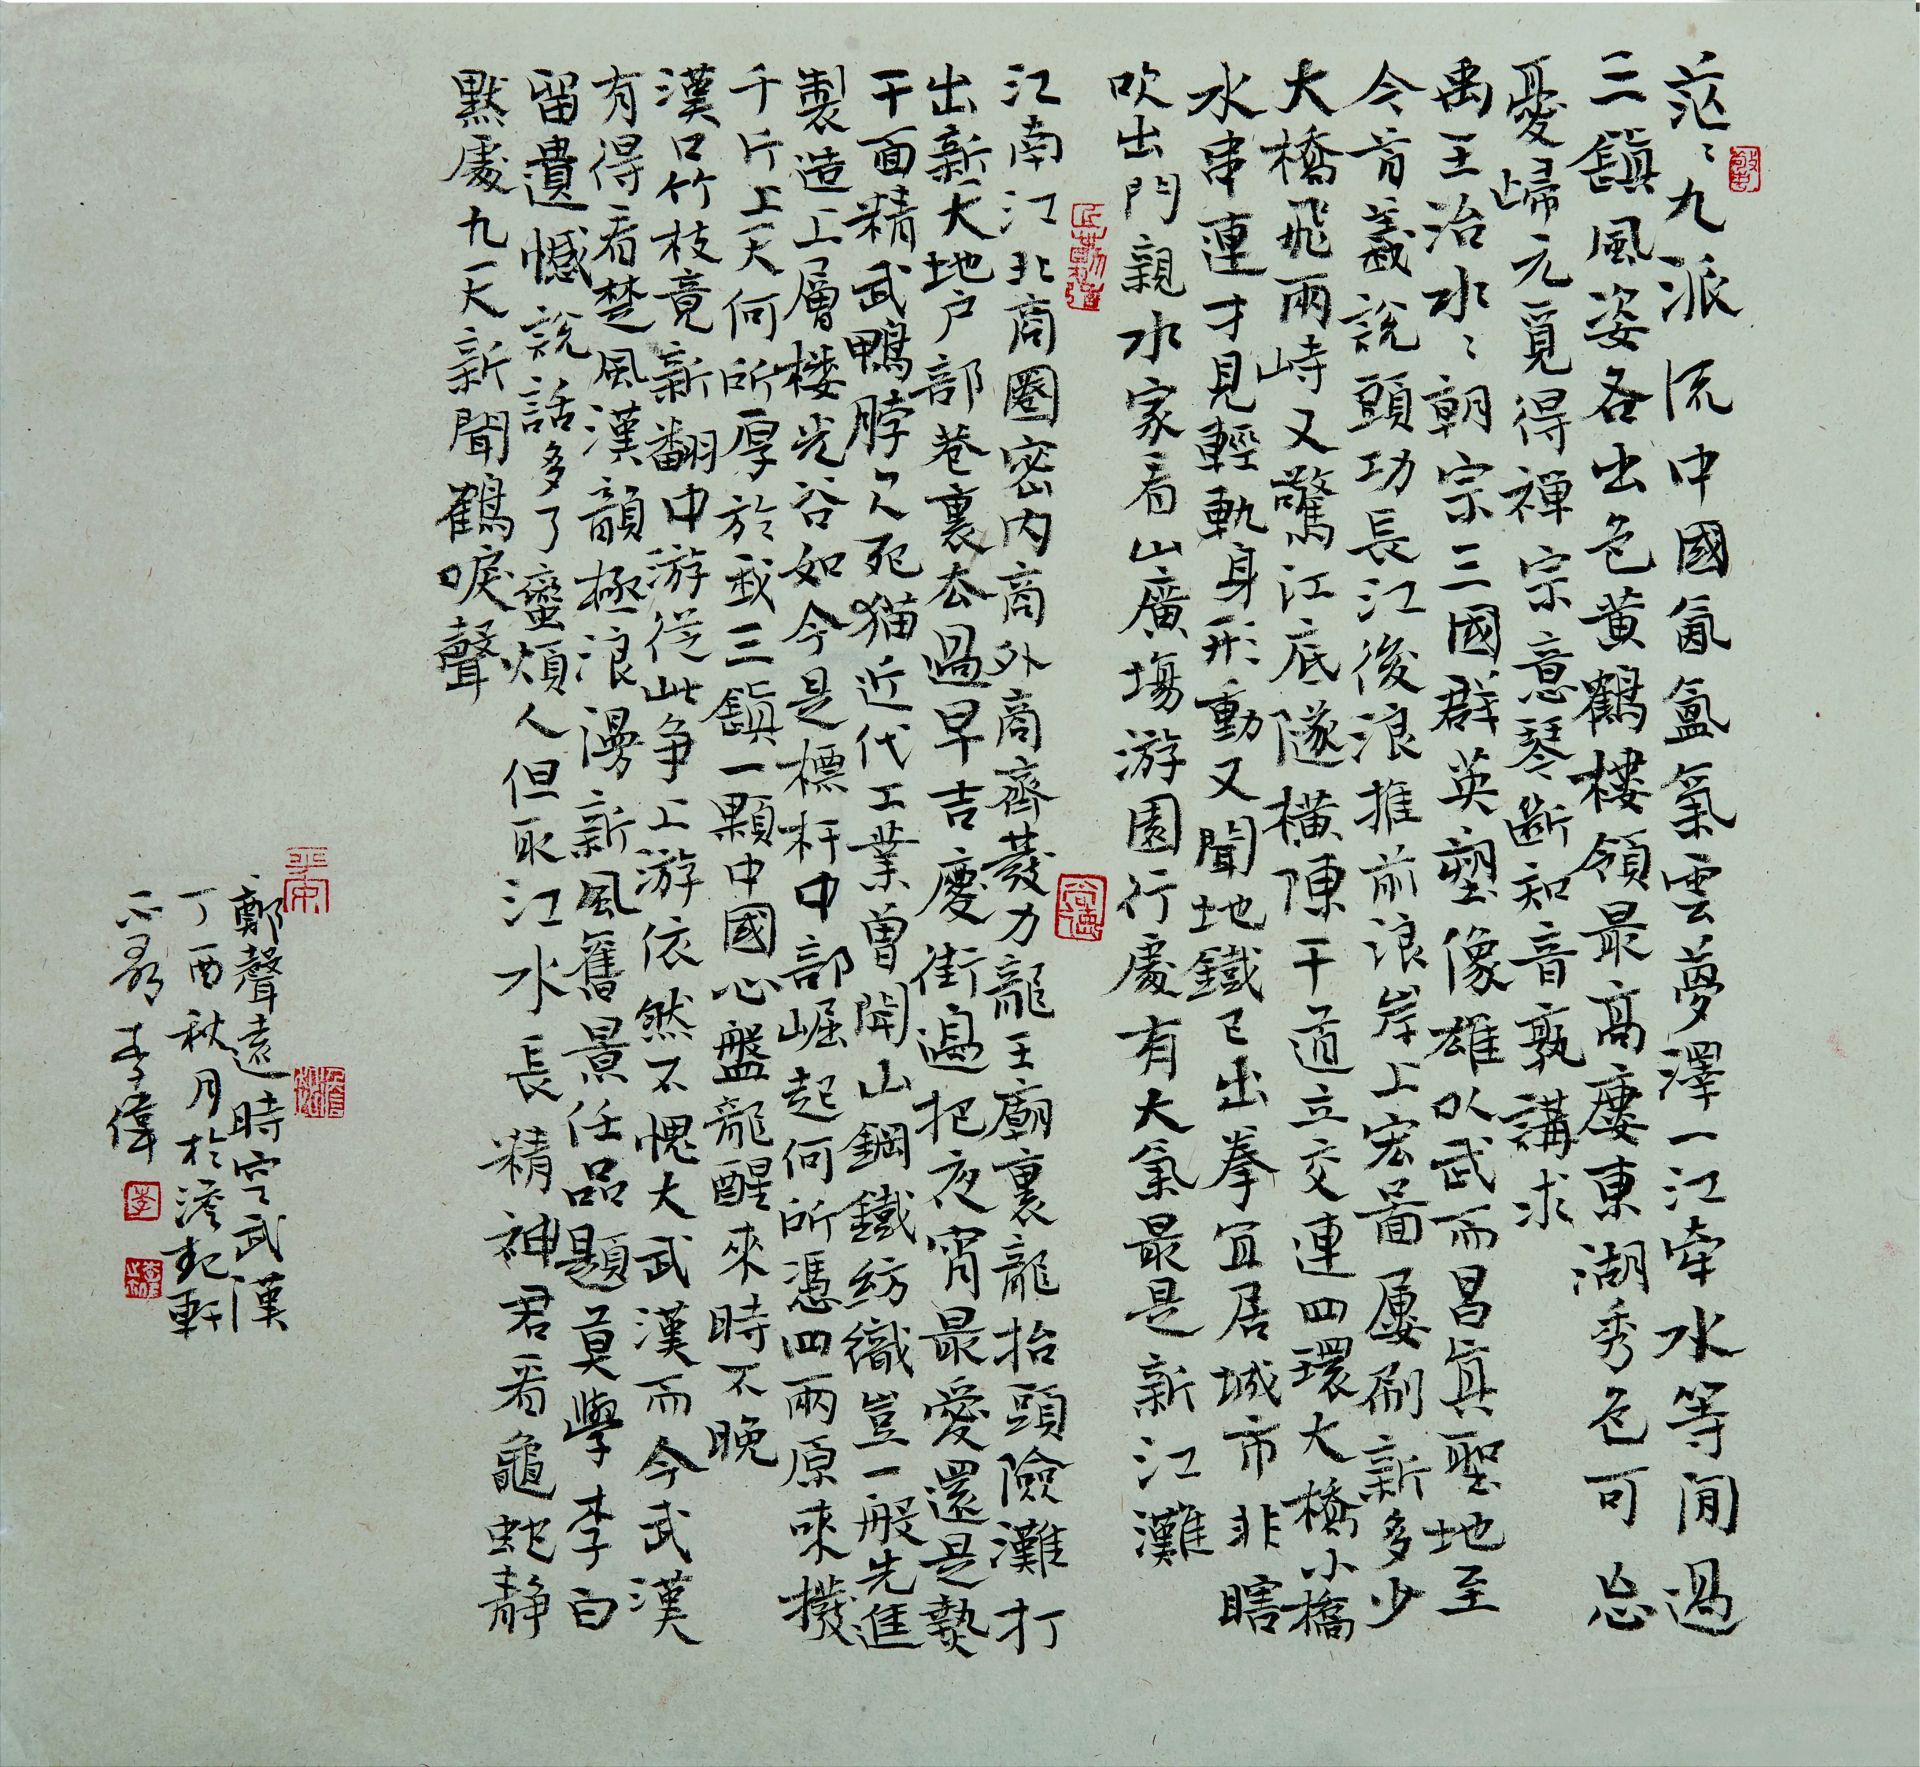 茫〻九派流中國氤氳氣雲夢澤一江牽水等閒過
三鎮風姿各出色黃鶴樓領最高度東湖秀色可忘
憂歸元覓得禪宗意琴斷知音孰講求
禹王治水〻朝宗三國群英塑像雄以武而昌真聖地至
今首義說頭功長江後浪推前浪岸上宏圖屢刷新多少
大橋飛兩峙又驚江底隧橫陳干道立交連四環大橋小橋
水串連才見輕軌身形動又聞地鐵已出拳宜居城市非瞎
吹出門親水家看山廣場游園行處有大氣最是新江灘
江南江北商圈密內商外商齊發力龍王廟裏龍抬頭險灘打
出新天地户部巷裏去過早吉慶街邊把夜宵最愛還是熱
干面精武鴨脖欠死猫近代工業曾開山鋼鐵紡織豈一般先進
製造上層樓光谷如今是標杆中部崛起何所憑四兩原來撥
千斤上天何所厚於我三鎮一顆中國心盤龍醒來時不晚
漢口竹枝竟新翻中游從此争上游依然不愧大武漢而今武漢
有得看楚風漢韻極浪漫新風舊景任品題莫學李白
留遺憾說話多了蠻煩人但取江水長精神君看龜蛇静
默處九天新聞鶴唳聲
鄭聲遠時空武漢
丁酉秋月於澹
李偉